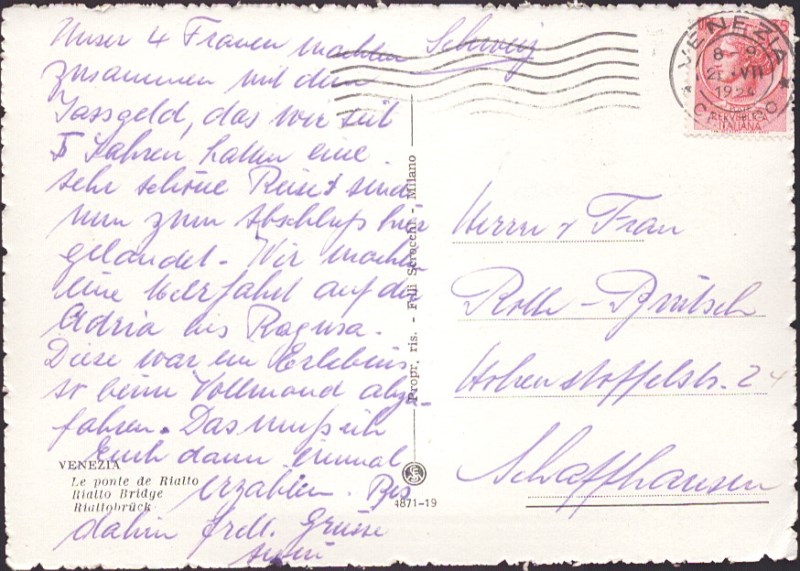 Unser 4 Frauen machten
zusammen mit dem
Jassgeld, das wir seit
5 Jahren hatten eine
sehr schöne Reise + sind
nun zum Abschluß hier
gelandet. Wir machen
eine Meerfahrt auf der
Adria bis Ragusa.
Diese war ein Erlebnis
so beim Vollmond abzu-
fahren. Das muß ich
Euch dann einmal
erzählen. Bis
dahin frdl. Grüsse
VENEZIA
Le ponte de Rialto
Rialto Bridge
Rialtobrück
4871-19
Propr. ris. - F.lli Scrocchi - Milano
Schweiz
VENEZIA
8-9
VII
1954
REPVBBLICA
ITALIANA
Herrn + Frau
Rolle-Brütsch
Hohenstoffelstr. 24
Schaffhausen